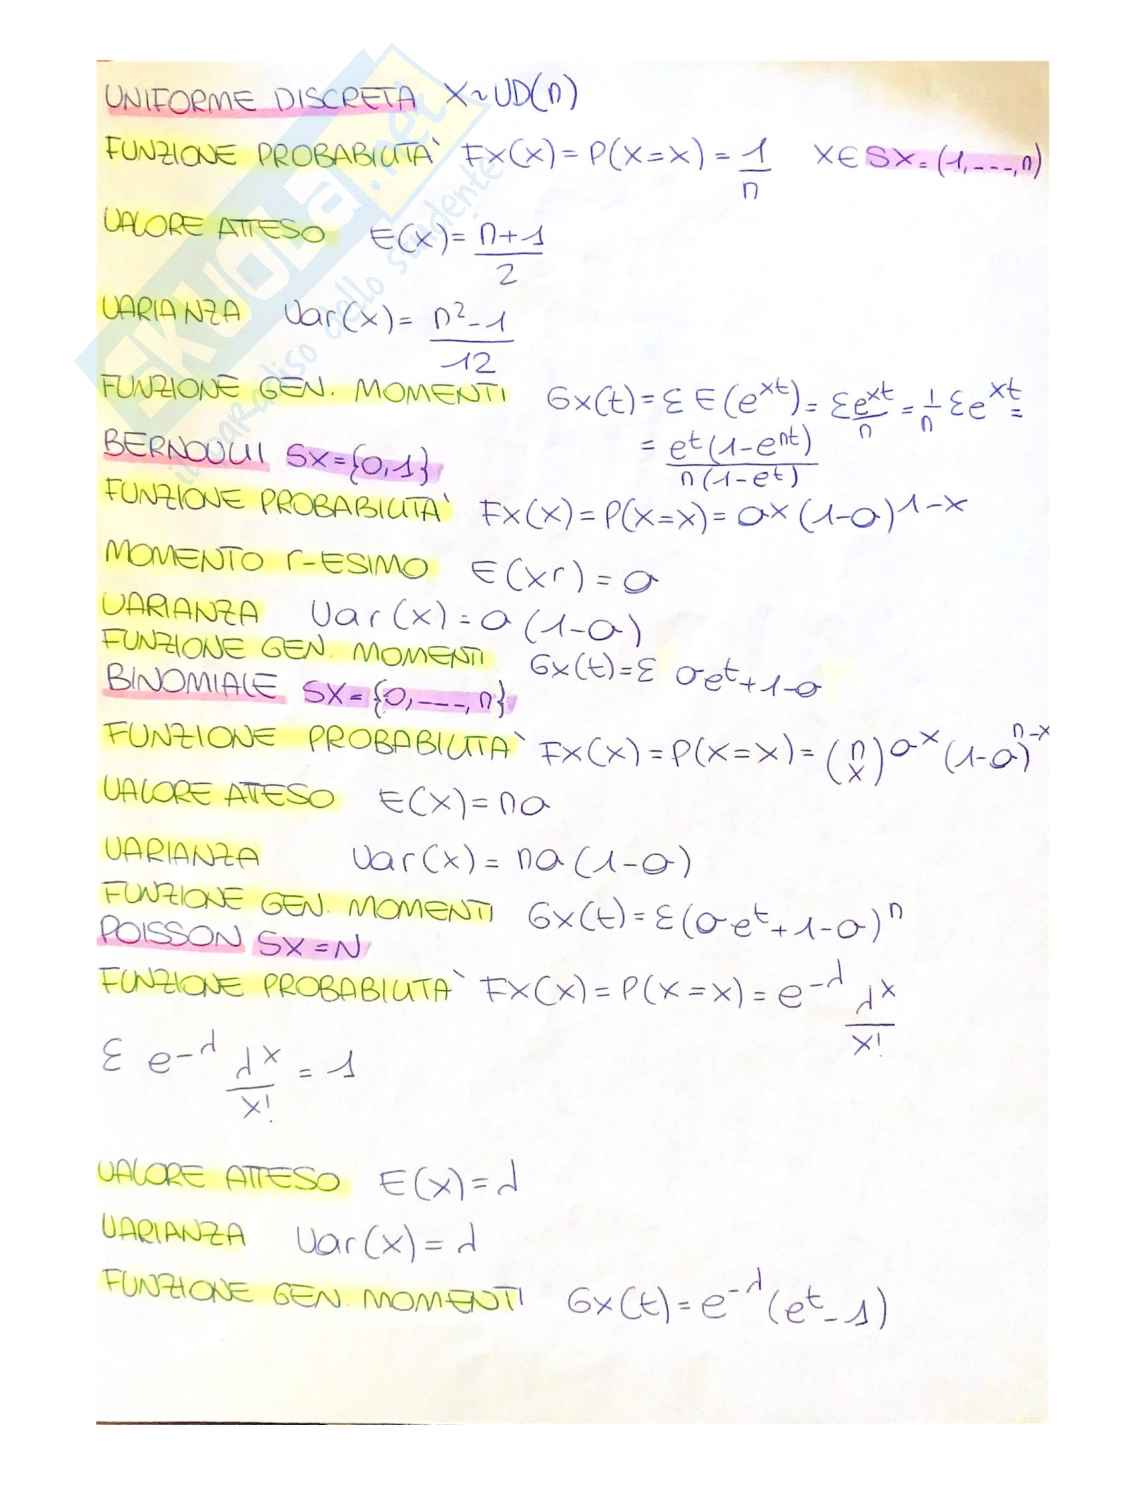 UNIFORME DISCRETA X~UD(n)
FUNZIONE PROBABILITA' Fx(x) = P(X=x) = 1/n X∈SX = (1, ---, n)
VALORE ATTESO E(x) = n+1/2
VARIANZA Var(x) = n²-1/12
FUNZIONE GEN. MOMENTI Gx(t) = Ɛ E(e^xt) = Ɛ e^xt/n = 1/n Ɛ e^xt =
= e^t(1-e^nt)/n(1-e^t)
BERNOULLI SX={0,1}
FUNZIONE PROBABILITA' Fx(x) = P(X=x) = σ^x (1-σ)^1-x
MOMENTO r-ESIMO E(xr) = σ
VARIANZA Var(x) = σ(1-σ)
FUNZIONE GEN. MOMENTI Gx(t) = Ɛ σe^t+1-σ
BINOMIALE SX={0, ---, n}
FUNZIONE PROBABILITA' Fx(x) = P(X=x) = (n x) σ^x (1-σ)^n-x
VALORE ATTESO E(x) = nσ
VARIANZA Var(x) = nσ(1-σ)
FUNZIONE GEN. MOMENTI Gx(t) = Ɛ(σe^t+1-σ)^n
POISSON SX=N
FUNZIONE PROBABILITA' Fx(x) = P(X=x) = e^-λ λ^x/x!
Ɛ e^-λ λ^x/x! = 1
VALORE ATTESO E(x) = λ
VARIANZA Var(x) = λ
FUNZIONE GEN. MOMENTI Gx(t) = e^-λ(e^t-1)
SKUOLA.net
il paradiso dello studente